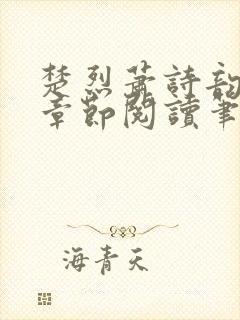 楚烈蕭詩韵
章節閱讀筆
海青天